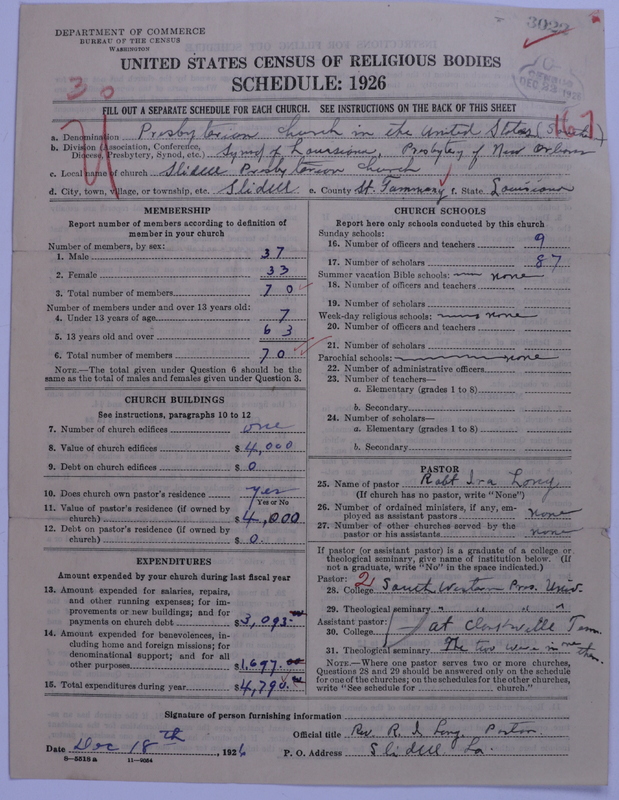 3022
DEPARTMENT OF COMMERCE
BUREAU OF THE CENSUS
WASHINGTON
UNITED STATES CENSUS OF RELIGIOUS BODIES
SCHEDULE: 1926
30
DEC 23 1926
FILL OUT A SEPARATE SCHEDULE FOR EACH CHURCH. SEE INSTRUCTIONS ON THE BACK OF THIS SHEET
167
a. Denomination Presbyterian Church in the United States (South)
b. Division (Association, Conference, Diocese, Presbytery, Synod, etc.) Synod of Louisiana, Presbytery of New Orleans
c. Local name of church Slidell Presbyterian Church
d. City, town, village, or township, etc. Slidell e. County St. Tammany f. State Louisiana
MEMBERSHIP
Report number of members according to definition of
member in your church
Number of members, by sex:
1. Male 37
2. Female 33
3. Total number of members 70
Number of members under and over 13 years old:
4. Under 13 years of age 7
5. 13 years old and over 63
6. Total number of members 70
NOTE.—The total given under Question 6 should be
same as the total of males and females given under Question 3.
CHURCH BUILDINGS
See instructions, paragraphs 10 to 12
7. Number of church edifices one
8. Value of church edifices $ 4,000
9. Debt on church edifices $ 0
10. Does church own pastor's residence yes
Yes or No
11. Value of pastor's residence (if owned by
church) $ 4,000
12. Debt on pastor's residence (if owned by
church) $ 0
EXPENDITURES
Amount expended by church during last fiscal year
13. Amount expended for salaries, repairs,
and other running expenses; for im-
provements or new buildings; and for
payments on church debt $3,093.00
14. Amount expended for benevolences, in-
cluding home and foreign missions; for
denominational support; and for all
other purposes $1,697.00
15. Total expenditures during year $4,790.00
CHURCH SCHOOLS
Report here only schools conducted by this church
Sunday schools:
16. Number of officers and teachers 9
17. Number of scholars 87
Summer vacation Bible schools: none
18. Number of officers and teachers
19. Number of scholars
Week-day religious schools: none
20. Number of officers and teachers
21. Number of scholars
Parochial schools: none
22. Number of administrative officers
23. Number of teachers—
a. Elementary (grades 1 to 8)
b. Secondary
24. Number of scholars—
a. Elementary (grades 1 to 8)
b. Secondary
PASTOR
25. Name of pastor Robt Ira Long
(If church has no pastor, write "None")
26. Number of ordained ministers, if any, em-
ployed as assistant pastors none
27. Number of other churches served by the
pastor or his assistants none
If pastor (or assistant pastor) is a graduate of a college or
theological seminary, give name of institution below. (If
not a graduate, write "No" in the space indicated.)
Pastor: 2
28. College South Western Pres. Univ.
29. Theological seminary " " " "
Assistant pastor:
30. College at Clarksville Tenn.
31. Theological seminary The two were in one then.
NOTE.—Where one pastor serves two or more churches,
Questions 28 and 29 should be answered only on the schedule
for one of the churches; on the schedules for the other churches,
write "See schedule for church."
Signature of person furnishing information
Official title Rev. R. I. Long, Pastor
Date Dec 18th, 1926 P. O. Address Slidell La.
8—5518a 11—9054